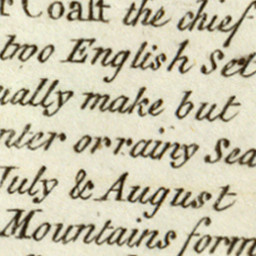 Coast the chief
two English Set
ually make but
nter or rainy Sea
July & August
Mountains form